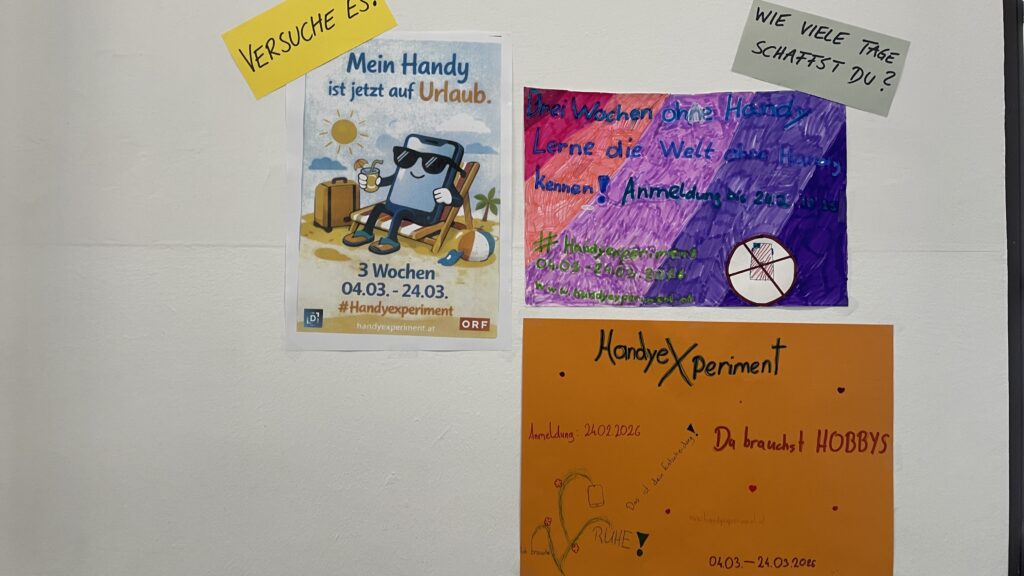 VERSUCHE ES!
WIE VIELE TAGE
SCHAFFST DU?
Mein Handy
ist jetzt auf Urlaub.
3 Wochen
04.03. - 24.03.
#Handyexperiment
handyexperiment.at
ORF
Drei Wochen ohne Handy
Lerne die Welt ohne Handy
kennen! Anmeldung bis 24.2.
# Handyexperiment
04.03. - 24.03. 2026
www.handyexperiment.at
HandyeXperiment
Anmeldung: 24.02.2026
Das ist dein Entscheidung!
Du brauchst HOBBYS
RUHE!
04.03. — 24.03.2026